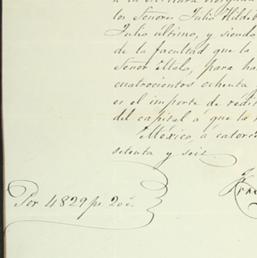 los Señores Julio Hildeb
Julio último, y siendo
de la facultad que la
Señor Mela, para ha
cuatrocientos ochenta
es el importe de redit
del capital á que la
México, á catorc
setenta y seis.
Por 4829 ps 20c.